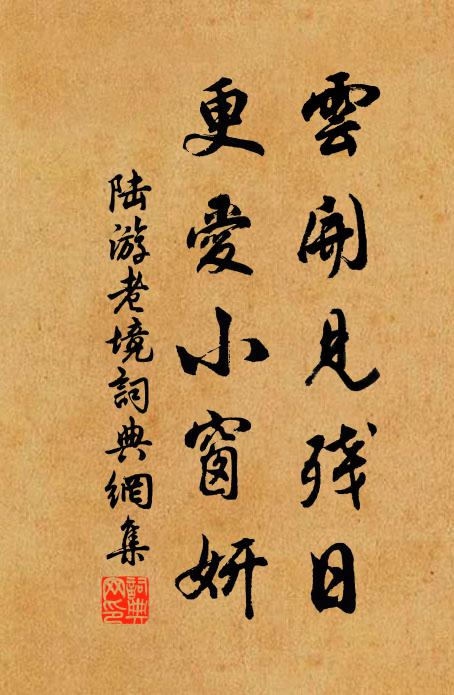 雲開見残日
更愛小窗妍
陸游老境詞典網集
詞典網印